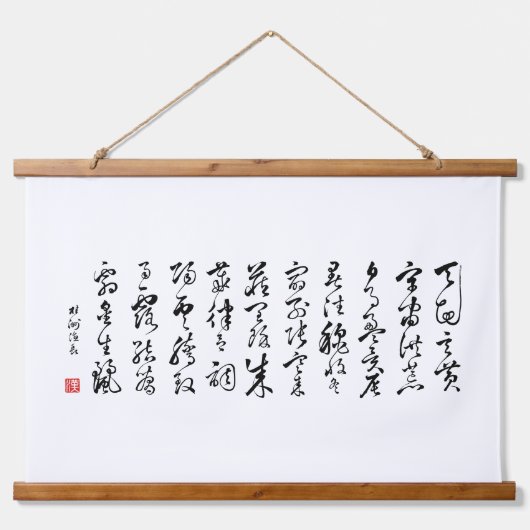 天地玄黃
宇宙洪荒
日月盈昃辰
暑往穐收冬
宿列張寒來
藏閏餘成
歲律呂調
陽雲騰致
雨露結為
霜金生麗